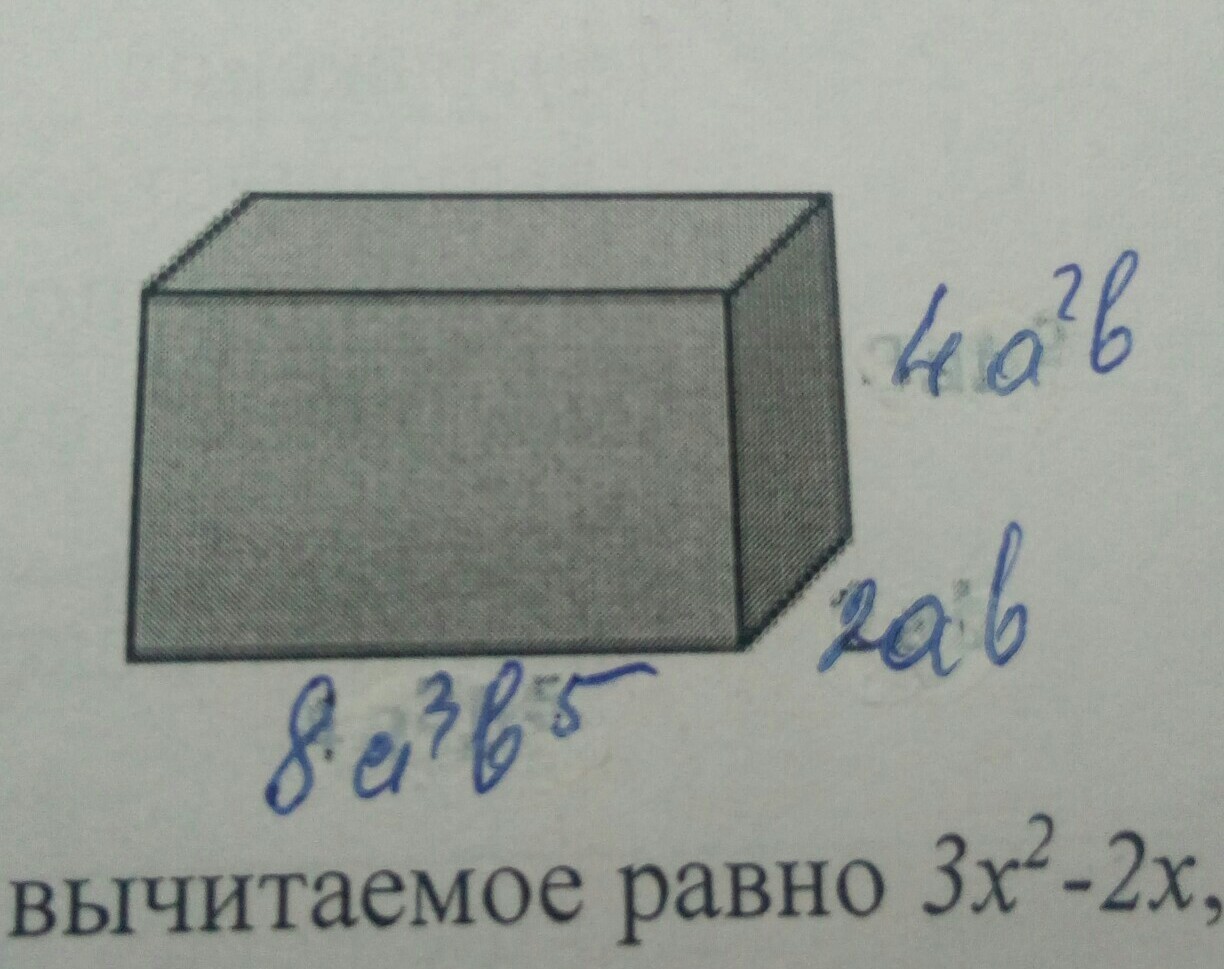 4a²b
2ab
8a³b⁵
вычитаемое равно 3x²-2x,